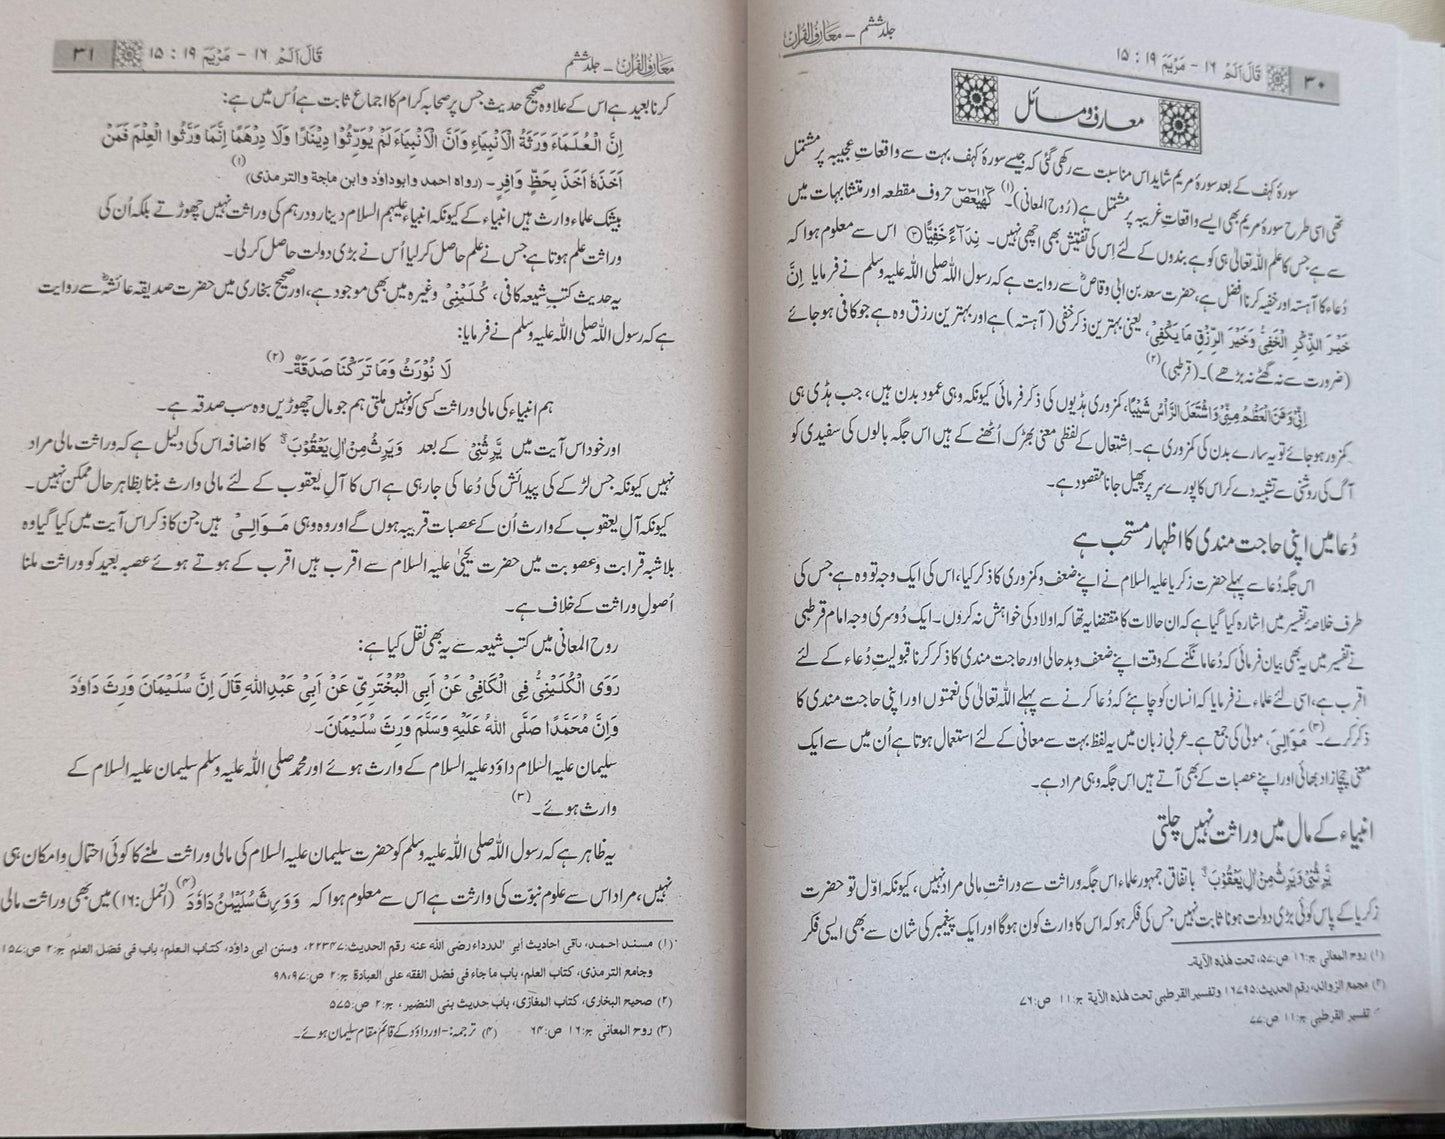 جلد ششم ـ معارف القرآن
قَالَ اَلَمْ ۱۶ - مَرْیَم ۱۹ : ۱۵
۳۰
معارف و مسائل
سورۂ کہف کے بعد سورۂ مریم شاید اس مناسبت سے رکھی گئی کہ جیسے سورۂ کہف بہت سے واقعاتِ عجیبہ پر مشتمل
تھی اسی طرح سورۂ مریم بھی ایسے واقعاتِ غریبہ پر مشتمل ہے (رُوح المعانی)۔(۱) كٓهٰيٰعٓصٓ حروف مقطعہ اور متشابہات میں
سے ہے جس کا علم اللہ تعالیٰ ہی کو ہے بندوں کے لئے اس کی تفتیش بھی اچھی نہیں۔ نِدَآءً خَفِيًّا ﴿۳﴾ اس سے معلوم ہوا کہ
دُعاء کا آہستہ اور خفیہ کرنا افضل ہے، حضرت سعد بن ابی وقاصؓ سے روایت ہے کہ رسول اللہ صلی اللہ علیہ وسلم نے فرمایا اِنَّ
خَيْرَ الذِّكْرِ الْخَفِيُّ وَخَيْرَ الرِّزْقِ مَا يَكْفِيْ، یعنی بہترین ذکر خفی (آہستہ) ہے اور بہترین رزق وہ ہے جو کافی ہو جائے
(ضرورت سے نہ گھٹے نہ بڑھے)۔ (قرطبی)(۲)
اِنِّيْ وَهَنَ الْعَظْمُ مِنِّيْ وَاشْتَعَلَ الرَّاْسُ شَيْبًا، کمزوری ہڈیوں کی ذکر فرمائی کیونکہ وہی عمودِ بدن ہیں، جب ہڈی ہی
کمزور ہو جائے تو یہ سارے بدن کی کمزوری ہے۔ اِشتعال کے لفظی معنی بھڑک اُٹھنے کے ہیں اس جگہ بالوں کی سفیدی کو
آگ کی روشنی سے تشبیہ دے کر اس کا پورے سر پر پھیل جانا مقصود ہے۔
دُعا میں اپنی حاجت مندی کا اظہار مستحب ہے
اس جگہ دُعا سے پہلے حضرت زکریا علیہ السلام نے اپنے ضعف و کمزوری کا ذکر کیا، اس کی ایک وجہ تو وہ ہے جس کی
طرف خلاصۂ تفسیر میں اِشارہ کیا گیا ہے کہ ان حالات کا مقتضا یہ تھا کہ اولاد کی خواہش نہ کروں۔ ایک دُوسری وجہ امام قرطبی
نے تفسیر میں یہ بھی بیان فرمائی کہ دُعا مانگنے کے وقت اپنے ضعف و بدحالی اور حاجت مندی کا ذکر کرنا قبولیتِ دُعاء کے لئے
اقرب ہے، اسی لئے علماء نے فرمایا کہ انسان کو چاہئے کہ دُعا کرنے سے پہلے اللہ تعالیٰ کی نعمتوں اور اپنی حاجت مندی کا
ذکر کرے۔(۳) مَوَالِیَ، مولیٰ کی جمع ہے۔ عربی زبان میں یہ لفظ بہت سے معانی کے لئے استعمال ہوتا ہے اُن میں سے ایک
معنی چچازاد بھائی اور اپنے عصبات کے بھی آتے ہیں اس جگہ وہی مراد ہے۔
انبیاء کے مال میں وراثت نہیں چلتی
يَّرِثُنِيْ وَيَرِثُ مِنْ اٰلِ يَعْقُوْبَ ۖ باتفاق جمہور علماء اس جگہ وراثت سے وراثتِ مالی مراد نہیں، کیونکہ اوّل تو حضرت
زکریا کے پاس کوئی بڑی دولت ہونا ثابت نہیں جس کی فکر ہو کہ اس کا وارث کون ہوگا اور ایک پیغمبر کی شان سے بھی ایسی فکر
(۱) روح المعانی ج:۱۶ ص:۵۷، تحت هٰذه الآية۔
(۲) مجمع الزوائد، رقم الحدیث:۱۶۷۹۵ وتفسير القرطبي تحت هٰذه الآية ج:۱۱ ص:۷۶
تفسير القرطبي ج:۱۱ ص:۷۷
معارف القرآن ـ جلد ششم
قَالَ اَلَمْ ۱۶ - مَرْیَم ۱۹ : ۱۵
۳۱
کرنا بعید ہے اس کے علاوہ صحیح حدیث جس پر صحابہ کرام کا اجماع ثابت ہے اُس میں ہے:
اِنَّ الْعُلَمَاءَ وَرَثَةُ الْاَنْبِيَاءِ وَاَنَّ الْاَنْبِيَاءَ لَمْ يُوَرِّثُوْا دِيْنَارًا وَلَا دِرْهَمًا اِنَّمَا وَرَّثُوا الْعِلْمَ فَمَنْ
اَخَذَهٗ اَخَذَ بِحَظٍّ وَافِرٍ۔ (رواه احمد وابوداود وابن ماجة والترمذی)(۱)
بیشک علماء وارث ہیں انبیاء کے کیونکہ انبیاء علیہم السلام دینار و درہم کی وراثت نہیں چھوڑتے بلکہ اُن کی
وراثت علم ہوتا ہے جس نے علم حاصل کر لیا اُس نے بڑی دولت حاصل کر لی۔
یہ حدیث کتبِ شیعہ کافی، کُلَیْنِیْ وغیرہ میں بھی موجود ہے، اور صحیح بخاری میں حضرت صدیقہ عائشہؓ سے روایت
ہے کہ رسول اللہ صلی اللہ علیہ وسلم نے فرمایا:
لَا نُوْرَثُ وَمَا تَرَكْنَا صَدَقَةٌ۔(۲)
ہم انبیاء کی مالی وراثت کسی کو نہیں ملتی ہم جو مال چھوڑیں وہ سب صدقہ ہے۔
اور خود اس آیت میں يَّرِثُنِيْ کے بعد وَيَرِثُ مِنْ اٰلِ يَعْقُوْبَ ۖ کا اضافہ اس کی دلیل ہے کہ وراثتِ مالی مراد
نہیں کیونکہ جس لڑکے کی پیدائش کی دُعا کی جا رہی ہے اس کا آلِ یعقوب کے لئے مالی وارث بننا بظاہر حال ممکن نہیں۔
کیونکہ آلِ یعقوب کے وارث اُن کے عصبات قریبہ ہوں گے اور وہ وہی مَوَالِیْ ہیں جن کا ذکر اس آیت میں کیا گیا وہ
بلاشبہ قرابت و عصوبت میں حضرت یحییٰ علیہ السلام سے اقرب ہیں اقرب کے ہوتے ہوئے عصبہ بعید کو وراثت ملنا
اُصولِ وراثت کے خلاف ہے۔
روح المعانی میں کتب شیعہ سے یہ بھی نقل کیا ہے:
رَوَى الْكُلَيْنِيُّ فِي الْكَافِيْ عَنْ اَبِي الْبُخْتَرِيِّ عَنْ اَبِيْ عَبْدِ اللهِ قَالَ اِنَّ سُلَيْمَانَ وَرِثَ دَاوٗدَ
وَاِنَّ مُحَمَّدًا صَلَّى اللهُ عَلَيْهِ وَسَلَّمَ وَرِثَ سُلَيْمَانَ۔
سلیمان علیہ السلام داوٗد علیہ السلام کے وارث ہوئے اور محمد صلی اللہ علیہ وسلم سلیمان علیہ السلام کے
وارث ہوئے۔(۳)
یہ ظاہر ہے کہ رسول اللہ صلی اللہ علیہ وسلم کو حضرت سلیمان علیہ السلام کی مالی وراثت ملنے کا کوئی احتمال و امکان ہی
نہیں، مراد اس سے علومِ نبوّت کی وارثت ہے اس سے معلوم ہوا کہ وَوَرِثَ سُلَيْمٰنُ دَاوٗدَ (۴) (النمل:۱۶) میں بھی وراثتِ مالی
(۱) مسند احمد، باقی احادیث أبی الدرداء رضی الله عنه رقم الحدیث:۲۲۳۴۷، وسنن ابی داوٗد، کتاب العلم، باب فی فضل العلم ج:۲ ص:۱۵۷
وجامع الترمذی، کتاب العلم، باب ما جاء فی فضل الفقه علی العبادة ج:۲ ص:۹۸،۹۷
(۲) صحیح البخاری، کتاب المغازی، باب حدیث بنی النضیر، ج:۲ ص:۵۷۵
(۳) روح المعانی ج:۱۶ ص:۶۴ (۴) ترجمہ:- اور داوٗد کے قائم مقام سلیمان ہوئے۔